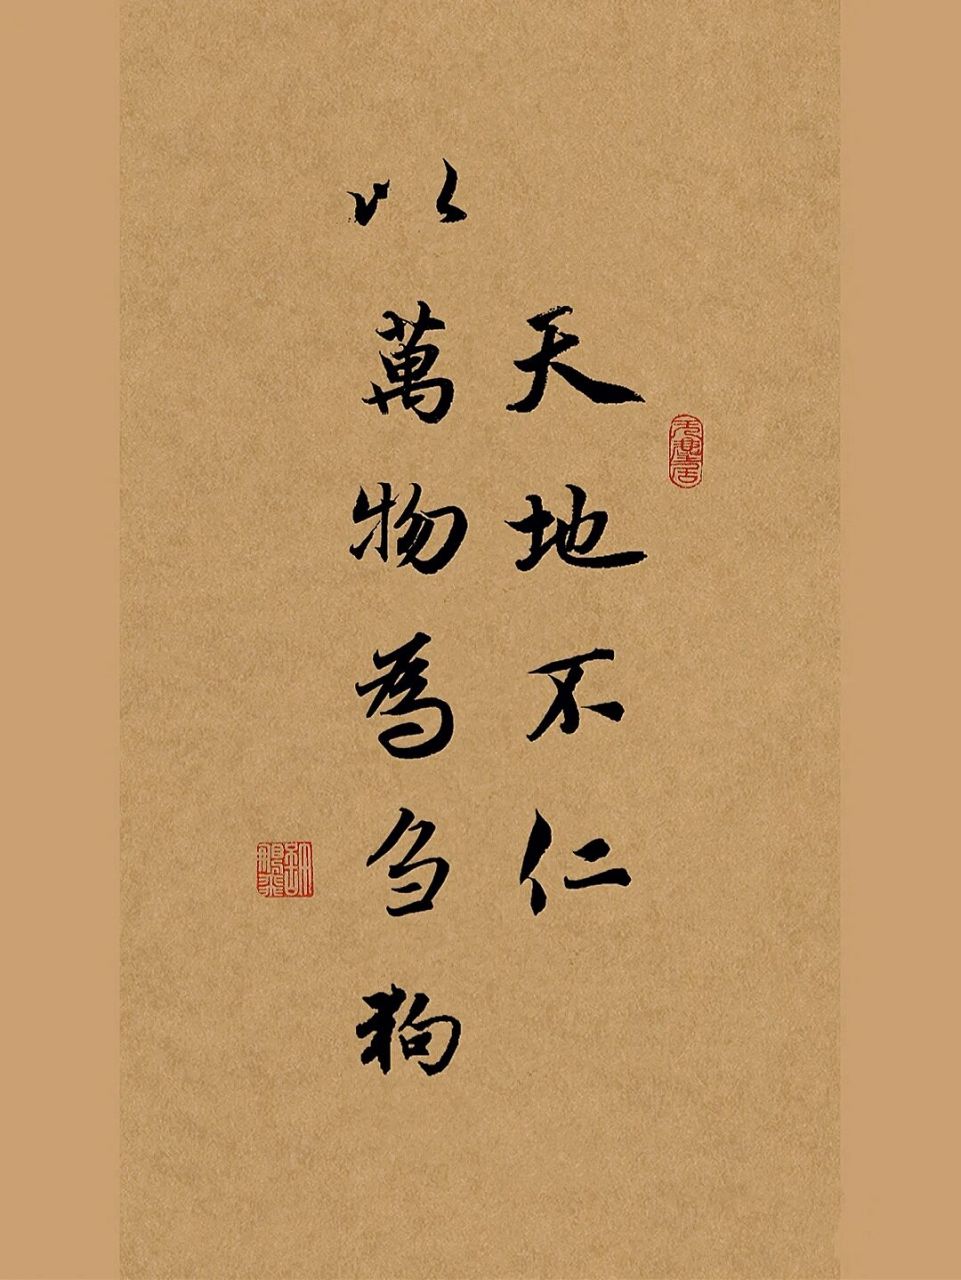 天地不仁
以萬物為芻狗